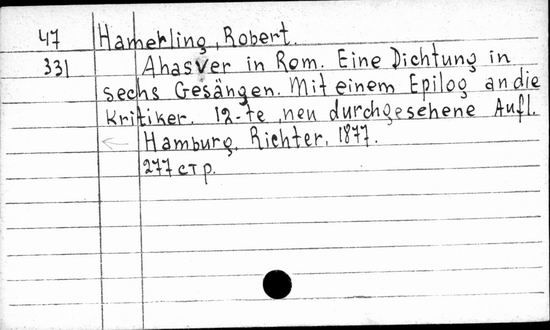 47 Hamerling, Robert.
331 Ahasver in Rom. Eine Dichtung in
sechs Gesängen. Mit einem Epilog an die
Kritiker. 12-te, neu durchgesehene Aufl.
Hamburg, Richter, 1877.
277 стр.